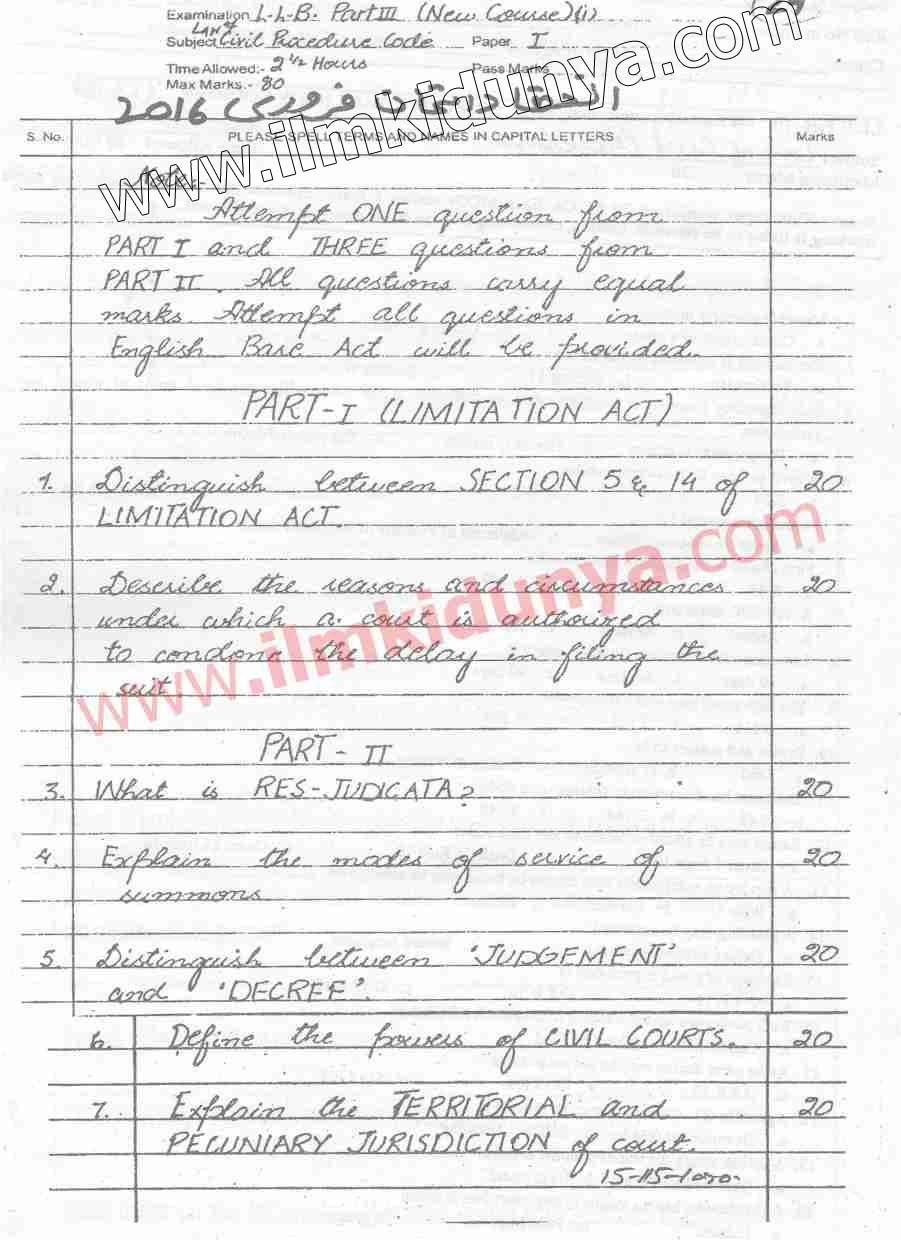 Examination L-L-B. Part III (New Course)(i)
Law of
Subject Civil Procedure Code Paper I
Time Allowed:- 2 1/2 Hours Pass Marks
Max Marks.- 80
فروری 2016
S. No. PLEASE SPELL TERMS AND NAMES IN CAPITAL LETTERS Marks
www.ilmkidunya.com
Note:-
Attempt ONE question from
PART I and THREE questions from
PART II. All questions carry equal
marks Attempt all questions in
English Bare Act will be provided.
PART-I (LIMITATION ACT)
1. Distinguish between SECTION 5 & 14 of 20
LIMITATION ACT.
2. Describe the reasons and circumstances 20
under which a court is authorized
to condone the delay in filing the
suit
www.ilmkidunya.com
PART-II
3. What is RES-JUDICATA? 20
4. Explain the modes of service of 20
summons
5. Distinguish between 'JUDGEMENT' 20
and 'DECREE'.
6. Define the powers of CIVIL COURTS. 20
7. Explain the TERRITORIAL and 20
PECUNIARY JURISDICTION of court.